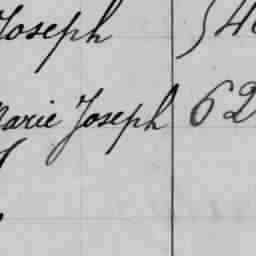 Joseph
Marie Joseph 62